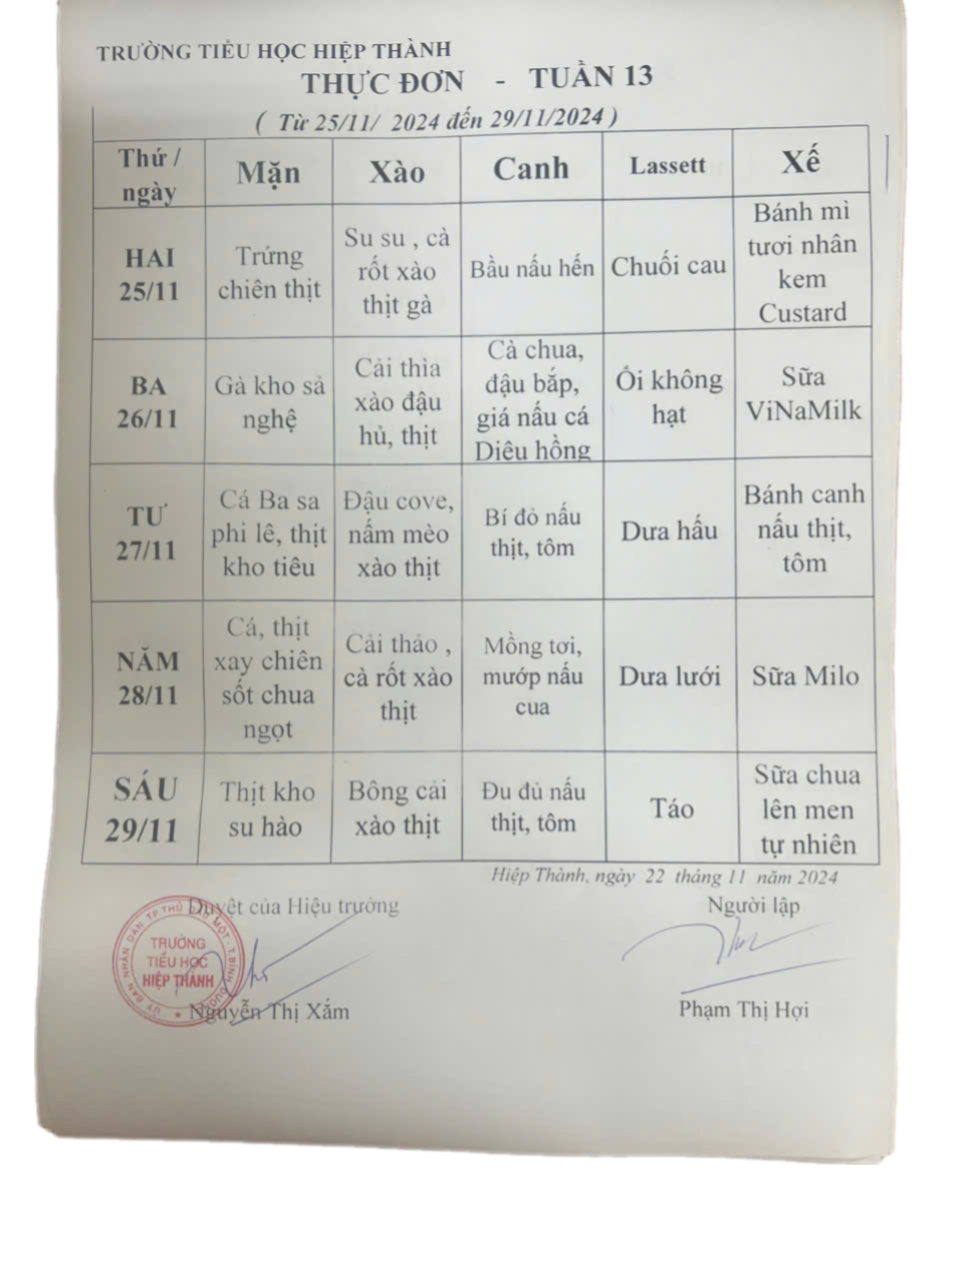 TRƯỜNG TIỂU HỌC HIỆP THÀNH
THỰC ĐƠN - TUẦN 13
( Từ 25/11/ 2024 đến 29/11/2024 )
Thứ /
ngày
Mặn
Xào
Canh
Lassett
Xế
HAI
25/11
Trứng
chiên thịt
Su su , cà
rốt xào
thịt gà
Bầu nấu hến
Chuối cau
Bánh mì
tươi nhân
kem
Custard
BA
26/11
Gà kho sả
nghệ
Cải thìa
xào đậu
hủ, thịt
Cà chua,
đậu bắp,
giá nấu cá
Diêu hồng
Ổi không
hạt
Sữa
ViNaMilk
TƯ
27/11
Cá Ba sa
phi lê, thịt
kho tiêu
Đậu cove,
nấm mèo
xào thịt
Bí đỏ nấu
thịt, tôm
Dưa hấu
Bánh canh
nấu thịt,
tôm
NĂM
28/11
Cá, thịt
xay chiên
sốt chua
ngọt
Cải thảo ,
cà rốt xào
thịt
Mồng tơi,
mướp nấu
cua
Dưa lưới
Sữa Milo
SÁU
29/11
Thịt kho
su hào
Bông cải
xào thịt
Đu đủ nấu
thịt, tôm
Táo
Sữa chua
lên men
tự nhiên
Hiệp Thành, ngày 22 tháng 11 năm 2024
Duyệt của Hiệu trưởng
Người lập
ỦY BAN NHÂN DÂN TP.THỦ DẦU MỘT - T.BÌNH DƯƠNG
TRƯỜNG
TIỂU HỌC
HIỆP THÀNH
Nguyễn Thị Xắm
Phạm Thị Hợi